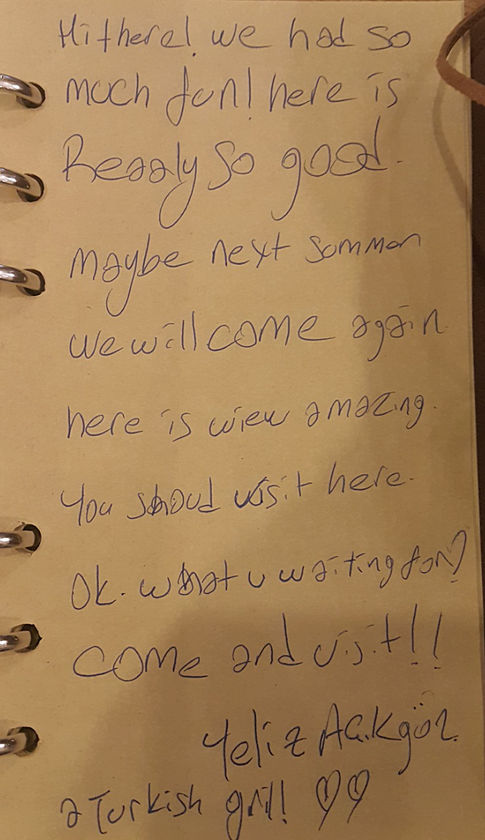 Hi there! we had so
much fun! here is
Reaaly so good.
maybe next summer
we will come again
here is wiew amazing.
You shoud visit here.
Ok. what u waiting for?
come and visit!!
Yeliz Açıkgöz
a Turkish gril! ♡♡